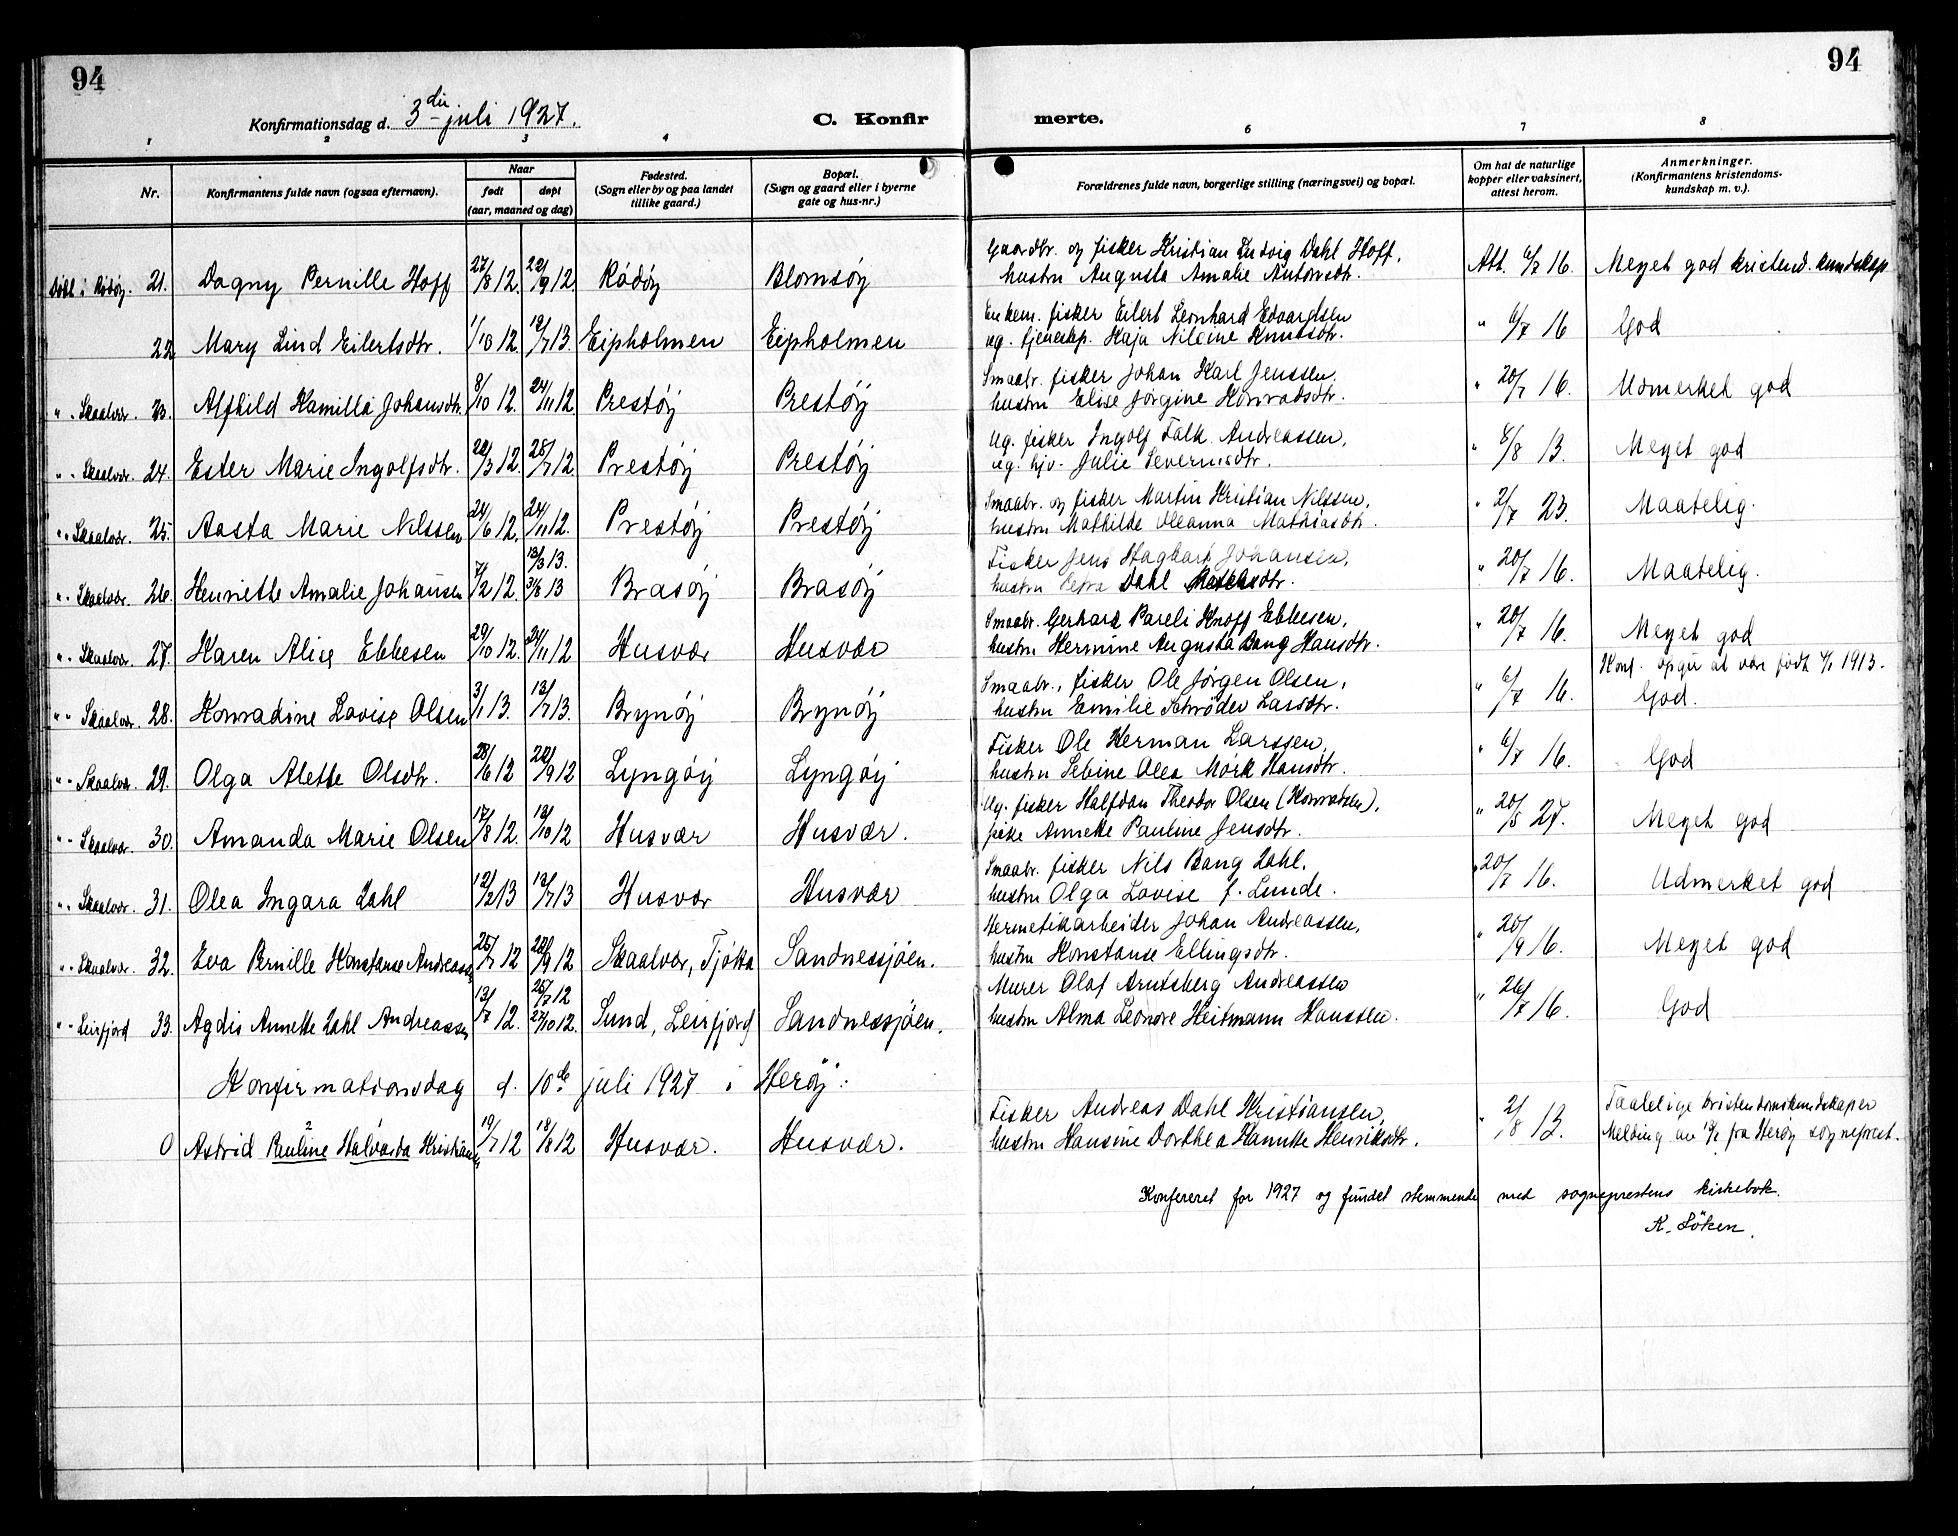 94
94
Konfirmationsdag d. 3die juli 1927.
C. Konfir
merte.
1 2 3 4 6 7 8
Nr.
Konfirmantens fulde navn (ogsaa efternavn).
Naar
født
døpt
(aar, maaned og dag)
Fødested.
(Sogn eller by og paa landet
tillike gaard.)
Bopæl.
(Sogn og gaard eller i byerne
gate og hus-nr.)
Forældrenes fulde navn, borgerlige stilling (næringsvei) og bopæl.
Om hat de naturlige
kopper eller vaksinert,
attest herom.
Anmerkninger.
(Konfirmantens kristendoms-
kundskap m. v.).
21. Dagny Pernille Hoff 27/8 12. 22/9 12 Rødøy Blomsøy Gaardbr. og fisker Kristian Ludvig Dahl Hoff,
hustru Augusta Amalie Antonsdtr. Att. 6/7 16. Meget god kristend. kundskap
22 Mary Lind Eilertsdtr. 1/10 12. 19/7 13. Eipholmen Eipholmen Enkem. fisker Eilert Leonhard Edvardsen
ug. tjenestep. Kaja Nilsine Knutsdtr. " 6/7 16 God
" - Skaalvær. 23. Alfhild Kamilla Johansdtr. 8/10 12. 24/11 12 Prestøy Prestøy Smaabr. fisker Johan Karl Jenssen,
hustru Elise Jørgine Konradsdtr. " 20/7 16. Udmerket god
" - Skaalvær. 24. Ester Marie Ingolfsdtr. 22/3 12. 28/7 12. Prestøy Prestøy Ug. fisker Ingolf Falk Andreassen,
ug. hjv. Julie Severinsdtr. " 8/8 13. Meget god
" - Skaalvær 25. Aasta Marie Nilssen 24/6 12. 24/11 12. Prestøy Prestøy Smaabr. og fisker Martin Kristian Nilssen,
hustru Mathilde Oleanna Mathiasdtr. " 2/7 23. Maatelig.
" - Skaalvær. 26. Henriette Amalie Johansen 7/2 12. 13/3 13.
31/8 13 Brasøy Brasøy Fisker Jens Hagbart Johansen,
hustru Petra Dahl " 20/7 16. Maatelig.
" - Skaalvær. 27. Karen Alice Ebbesen 29/10 12. 24/11 12 Husvær Husvær Smaabr. Gerhard Pareli Knoff Ebbesen,
hustru Hermine Augusta Bang Hansdtr. " 20/7 16. Meget god
" - Skaalvær. 28. Konradine Lovise Olsen 3/1 13. 13/7 13. Brynøy Brynøy Smaabr., fisker Ole Jørgen Olsen,
hustru Emilie Schrøder Larsdtr. " 6/7 16. Konf. opgir at vær født 4/1 1913.
God.
" - Skaalvær 29. Olga Alette Olsdtr. 28/6 12 22/9 12 Lyngøy Lyngøy Fisker Ole Herman Larssen,
hustru Sebine Olea Mørk Hansdtr. " 6/7 16. God
" - Skaalvær. 30. Amanda Marie Olsen 17/8 12. 13/10 12 Husvær Husvær. Ug. fisker Halfdan Theodor Olsen (Konradsen),
pike Annette Pauline Jensdtr. " 20/8 27. Meget god
" - Skaalvær. 31. Olea Ingara Dahl 12/2 13 13/7 13 Husvær Husvær Smaabr. fisker Nils Bang Dahl,
hustru Olga Lovise f. Lunde. " 20/7 16. Udmerket god
" - Skaalvær. 32. Eva Pernille Konstanse Andreassen 25/7 12 22/9 12 Skaalvær, Tjøtta Sandnessjøen. Hermetikarbeider Johan Andreassen,
hustru Konstanse Ellingsdtr. " 20/9 16. Meget god
" - Leirfjord 33. Agdis Annette Dahl Andreassen 13/7 12. 25/7 12
27/10 12. Sund, Leirfjord Sandnessjøen. Murer Olaf Arntsberg Andreassen
hustru Alma Leonore Heitmann Hanssen. " 26/7 16. God
Konfirmationsdag d. 10de juli 1927 i Herøy.
0 Astrid Pauline 2 Halvarda Kristiansen 19/7 12 18/8 12 Husvær. Husvær. Fisker Andreas Dahl Kristiansen,
hustru Hansine Dorthea Hannike Henriksdtr. " 2/8 13. Taalelige kristendomskundskaper
Melding av fra Herøy sogneprest.
Konfereret for 1927 og fundet stemmende med sogneprestens kirkebok.
K. Løken.